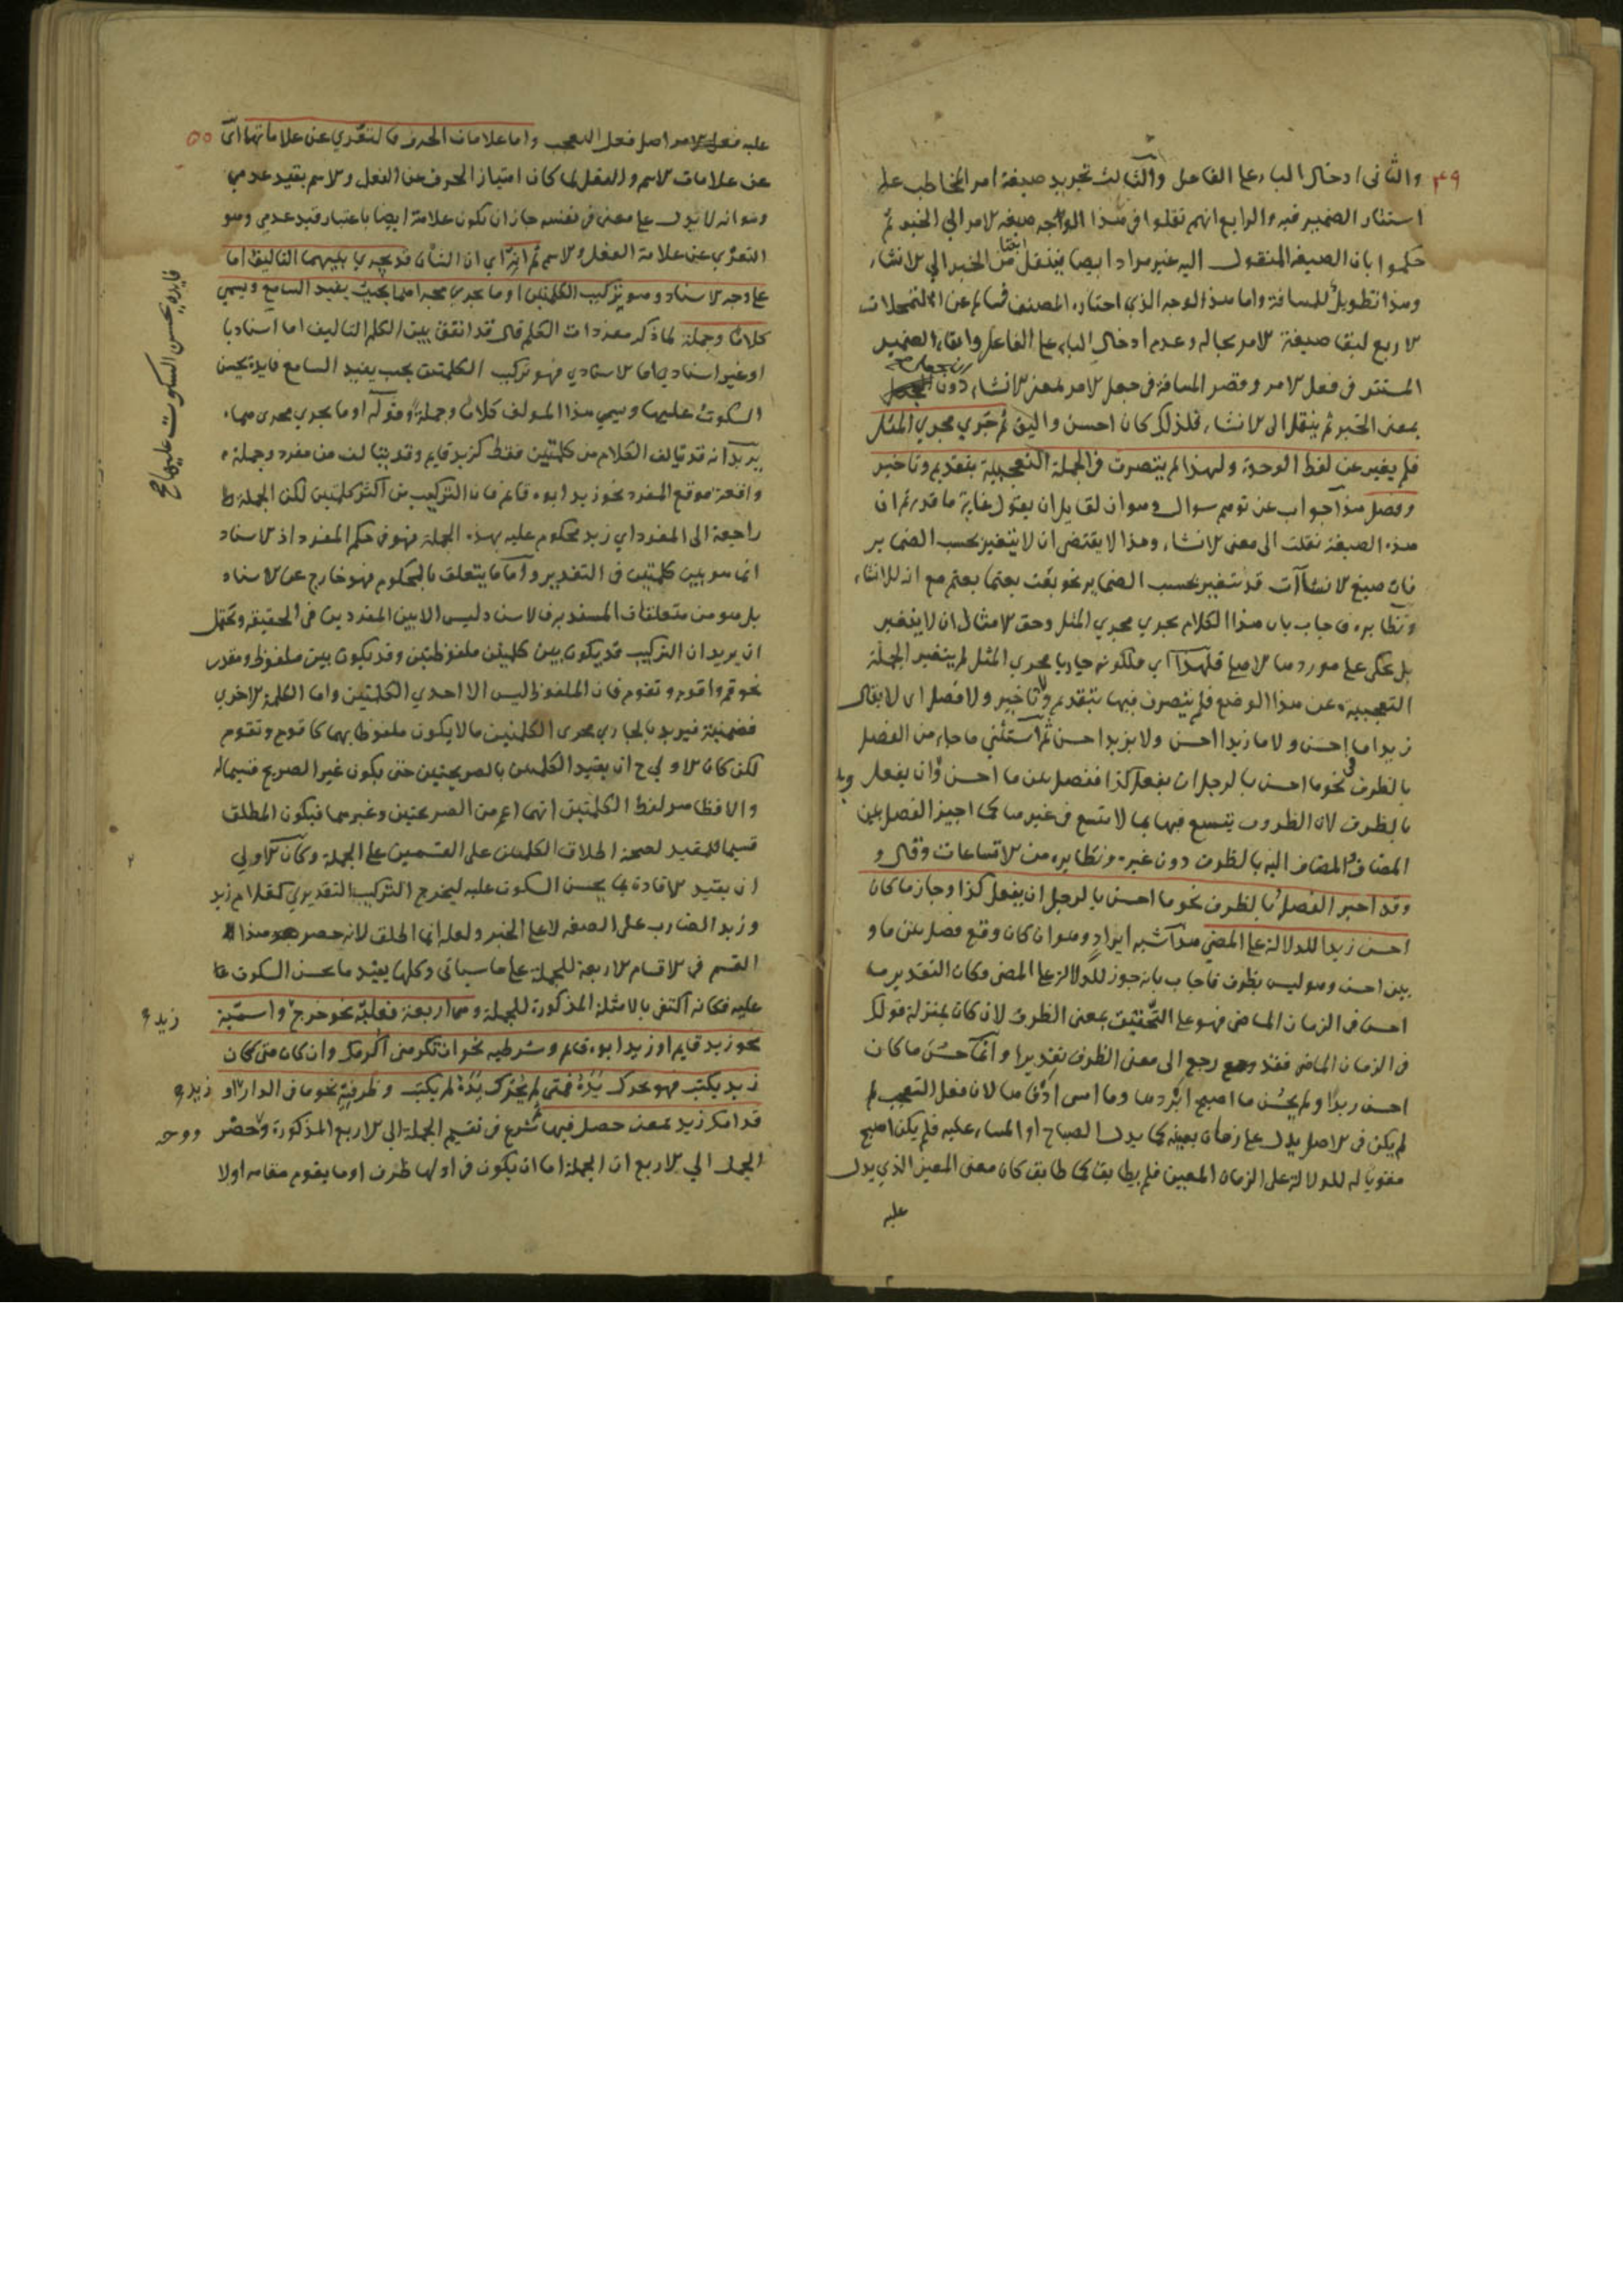 ٤٩
والثاني ادخال الباء على الفاعل والثالث تجريد صيغة امر المخاطب على
استتار الضمير فيه والرابع انهم نقلوا في هذا الوجه صيغة الامر الى الخبر ثم
حكموا بان الصيغة المنقول اليه غير مراد ايضا بنقل من الخبر الى الانشاء
وهذا تطويل للمسافة واما هذا الوجه الذي اختاره المصنف فسالم عن التمحلات
الاربع لبقاء صيغة الامر بحاله وعدم ادخال الباء على الفاعل وابقاء الضمير
المستتر في فعل الامر وقصر المسافة في جعل الامر لمعنى الانشاء دون
بمعنى الخبر ثم ينقل الى الانشاء فلذلك كان احسن واليق ثم جرى مجرى المثل
فلم يغير عن لفظ الوحدة ولهذا لم يتصرف في الجملة التعجبية بتقديم وتاخير
وفصل هذا جواب عن توهم سوال وهو ان لقايل ان يقول غاية ما قدرتم ان
هذه الصيغة نقلت الى معنى الانشاء وهذا لا يقتضي ان لا يتغير بحسب الضماير
فان صيغ الانشاآت قد تتغير بحسب الضماير نحو بعت بعتما بعتم مع انه للانشاء
ونظايره فاجاب بان هذا الكلام يجري مجرى المثل وحق الامثال ان لا يتغير
بل يحكى على موردها الاصلي فلهذا اي فلكونه جاريا مجرى المثل لم يتغير الجملة
التعجبية عن هذا الوضع فلم يتصرف فيها بتقديم وتاخير ولا فصل اي لا يقال
زيدا ما احسن ولا ما زيدا احسن ولا بزيد احسن ثم استثنى ما جاء من الفصل
بالظرف نحو ما احسن بالرجل ان يفعل كذا ففصل بين ما احسن وان يفعل
بالظرف لان الظروف يتسع فيها بما لا يتسع في غيرها كما اجيز الفصل بين
المضاف والمضاف اليه بالظرف دون غيره ونظايره من الاتساعات وقال و
وقد اجيز الفصل بالظرف نحو ما احسن بالرجل ان يفعل كذا وجاز ما كان
احسن زيدا للدلالة على المضي هذا شبه ايراد وهو ان كان وقع فصل بين ما و
بين احسن وهو ليس بظرف فاجاب بانه جوز للدلالة على المضي وكان التقدير ما
احسن في الزمان الماضي فهو على التحقيق بمعنى الظرف لان كان بمنزلة قولك
في الزمان الماضي فقد رجع الى معنى الظرف تقديرا وانما حسن ما كان
احسن زيدا ولم يحسن ما اصبح ابردها وما امسى ادفاها لان فعل التعجب لم
لم يكن في الاصل يدل على زمان بعينه كما يدل الصباح او المساء عليه فلم يكن اصبح
مقويا له للدلالة على الزمان المعين فلم يطابق كما طابق كان معنى المعين الذي يدل
عليه
٥٠
عليه فعل الامر اصل فعل التعجب واما علامات الحرف فالتعري عن علاماتهما اي
عن علامات الاسم والفعل لما كان امتياز الحرف عن الفعل والاسم بقيد عدمي
وهو انه لا يدل على معنى في نفسه جاز ان يكون علامة ايضا باعتبار قيد عدمي وهو
التعري عن علامة الفعل والاسم ثم انه اي ان الشان قد يجري بينهما التاليف اما
على وجه الاسناد وهو تركيب الكلمتين او ما يجري مجراهما بحيث يفيد السامع ويسمى
كلاما وجملة لما ذكر مفردات الكلم قال قد اتفق بين الكلم التاليف اما اسناديا
او غير اسنادي اما الاسنادي فهو تركيب الكلمتين بحيث يفيد السامع فايدة يحسن
السكوت عليها ويسمى هذا المولف كلاما وجملة وقوله او ما يجري مجراهما
يريد انه قد يتالف الكلام من كلمتين فقط كزيد قايم وقد يتالف من مفرد وجملة
واقعة موقع المفرد نحو زيد ابوه قايم فان التركيب من اكثر كلمتين لكن الجملة
راجعة الى المفرد اي زيد محكوم عليه بهذه الجملة فهو في حكم المفرد اذ الاسناد
انما هو بين كلمتين في التقدير واما ما يتعلق بالمحكوم فهو خارج عن الاسناد
بل هو من متعلقات المسند به فالاسناد ليس الا بين المفردين في الحقيقة ويحتمل
ان يريد ان التركيب قد يكون بين كلمتين ملفوظتين وقد يكون بين ملفوظ ومقدر
نحو قم واقوم وتقوم فان الملفوظ ليس الا احدي الكلمتين واما الكلمة الاخرى
فضمنية فيريد بالجاري مجرى الكلمتين ما لا يكون ملفوظا بهما كاقوم وتقوم
لكن كان الاولى ح ان يقيد الكلمتين بالصريحتين حتى يكون غير الصريح قسيما له
والا فظاهر لفظ الكلمتين انهما اعم من الصريحتين وغيرهما فيكون المطلق
قسيما للمقيد لصحة اطلاق الكلمتين على القسمين على الجملة وكان الاولى
ان يقيد الافادة بما يحسن السكوت عليه ليخرج التركيب التقديري كغلام زيد
وزيد الضارب على الصفة لا على الخبر ولعله انما اطلق لانه حصر هذا
القسم في الاقسام الاربعة للجملة على ما سياتي وكلها يفيد ما يحسن السكوت
عليه فكانه اكتفى بالامثلة المذكورة للجملة وهما اربعة فعلية نحو خرج واسمية
نحو زيد قايم او زيد ابوه قايم وشرطية نحو ان تكرمني اكرمك وان كان متى كان
زيد يكتب فهو يحرك يده فمتى لم يحرك يده لم يكتب وظرفية نحو ما في الدار او
قدامك زيد بمعنى حصل فيها شرع في تقسيم الجملة الى الاربع المذكورة وحصر
الجمل الى الاربع ان الجملة اما ان يكون في اولها ظرف او ما يقوم مقامه اولا
فايدة يحسن السكوت عليها صح
زيد
زيد
ووجه